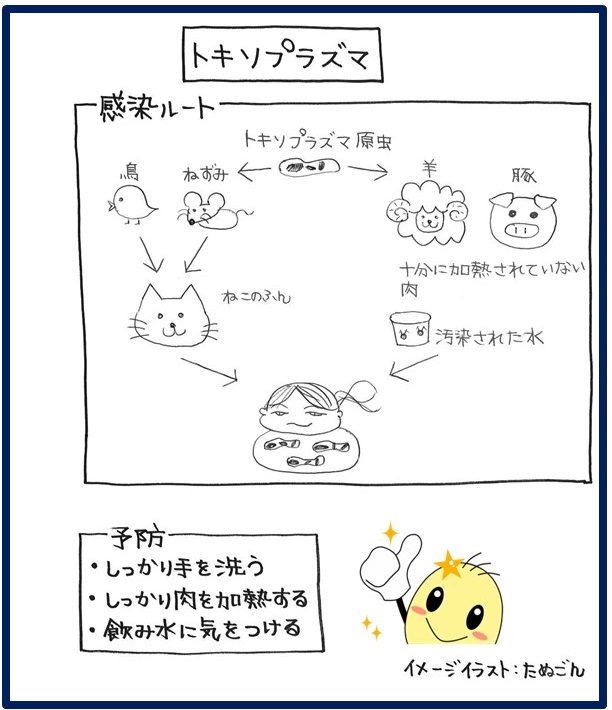 トキソプラズマ
感染ルート
トキソプラズマ原虫
鳥
ねずみ
羊
豚
十分に加熱されていない
肉
ねこのふん
汚染された水
予防
・しっかり手を洗う
・しっかり肉を加熱する
・飲み水に気をつける
イメージイラスト:たぬごん